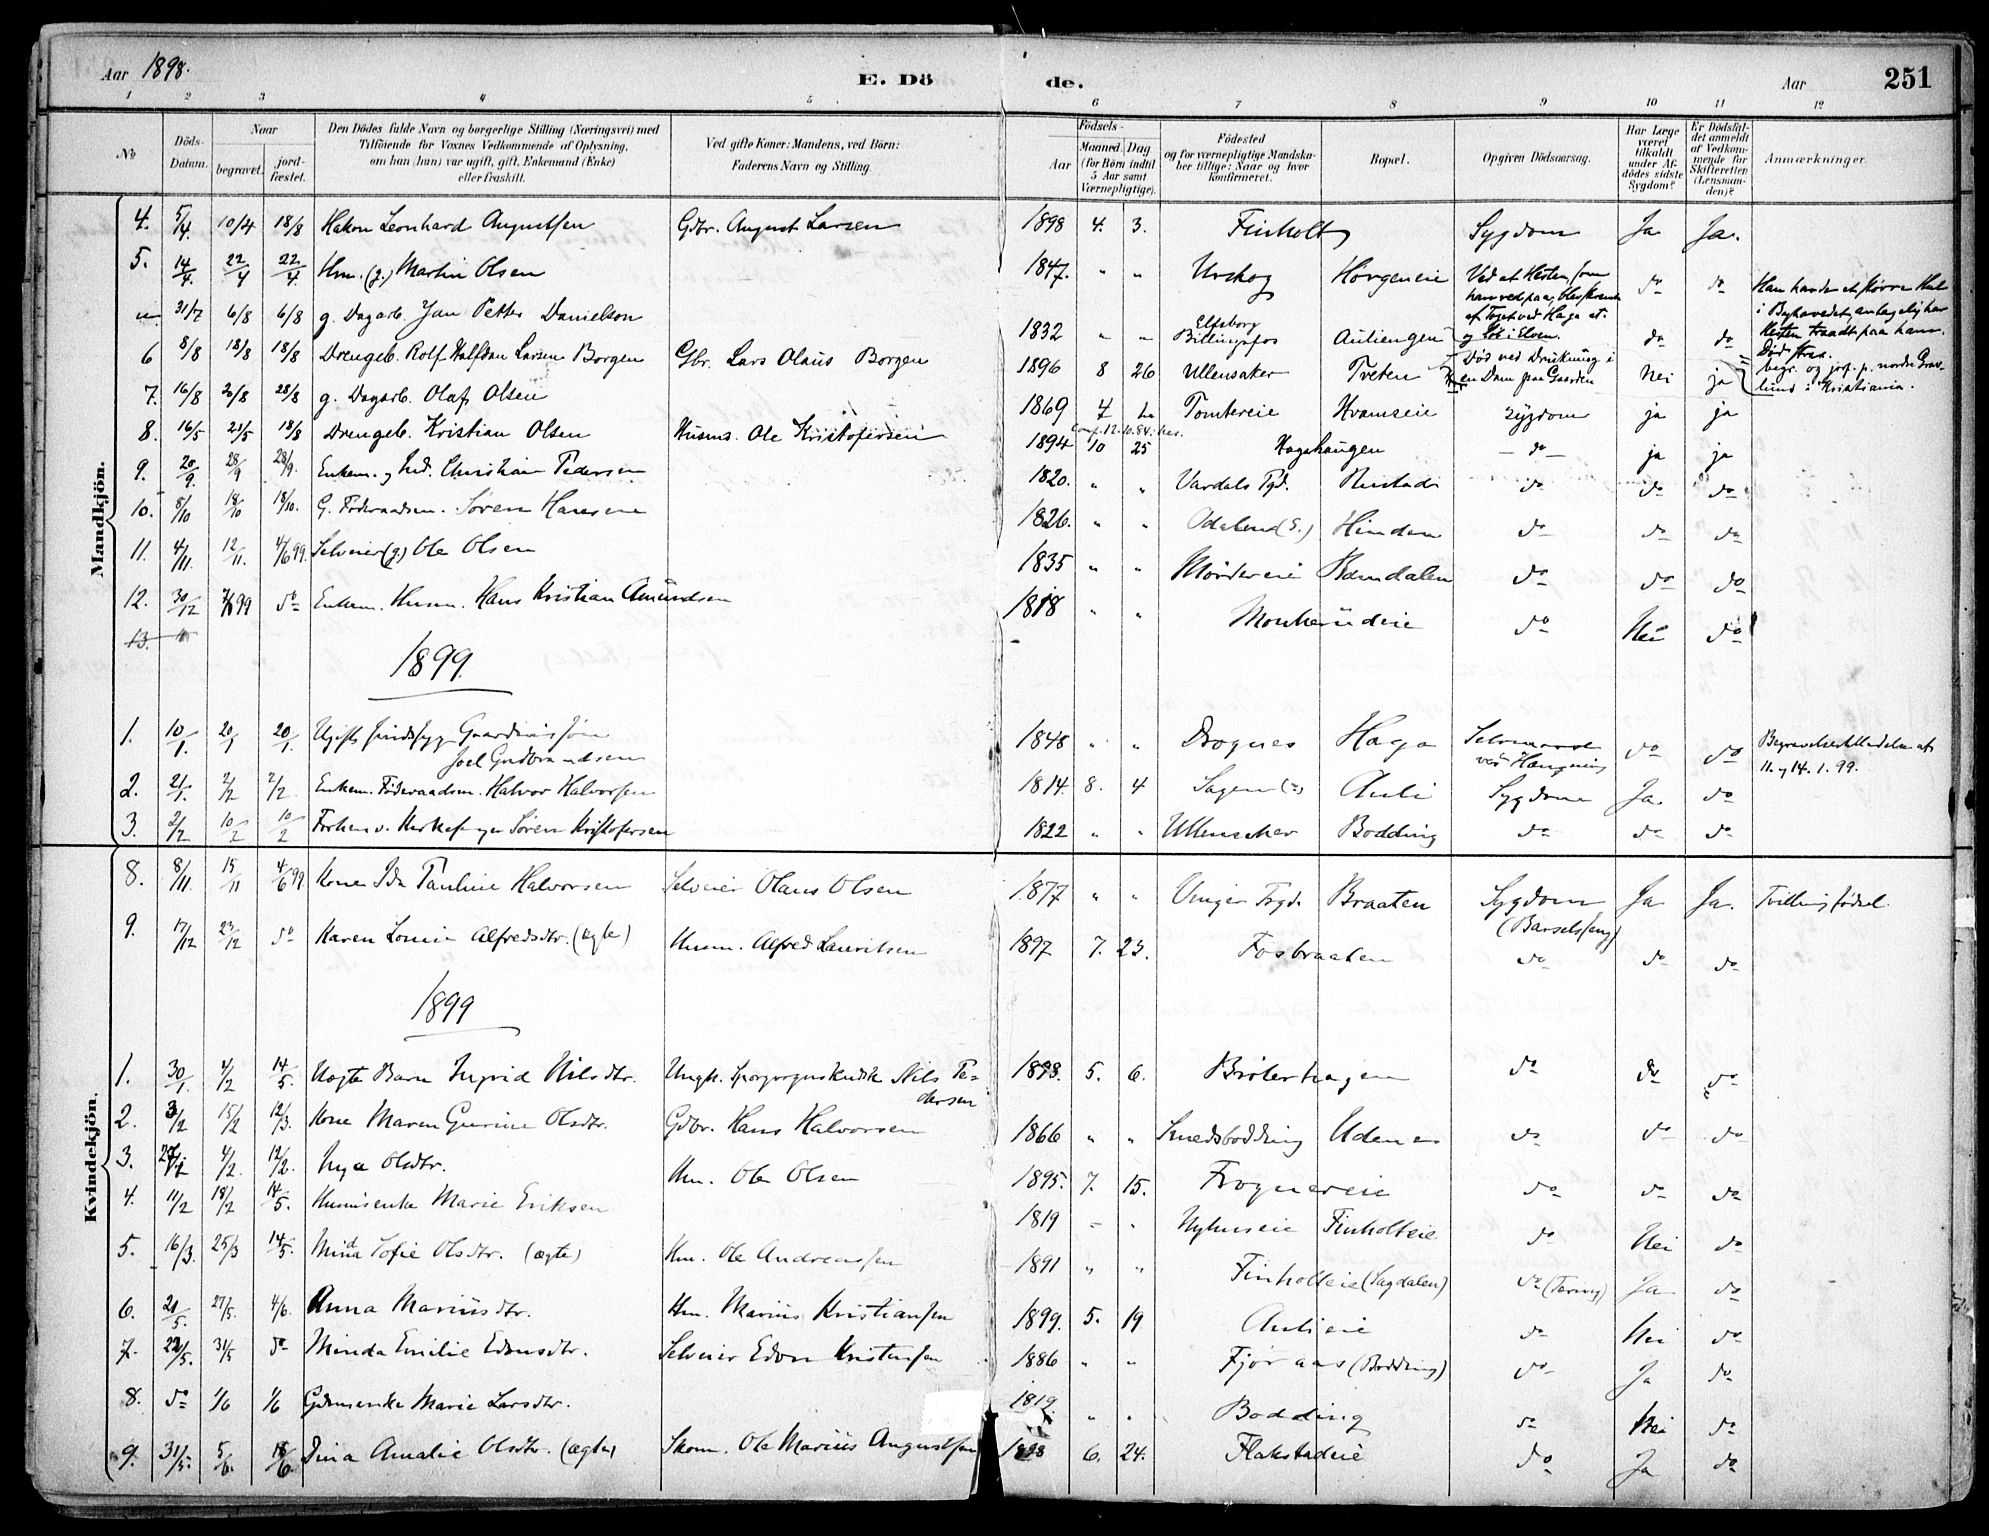 Aar 1898. E. Dö de. Aar 251
1 2 3 4 5 6 7 8 9 10 11 12
No
Döds-Datum.
Naar
begravet.
jord-fæstet.
Den Dödes fulde Navn og borgerlige Stilling (Næringsvei) med
Tilföiende for Voxnes Vedkommende af Oplysning,
om han (hun) var ugift, gift, Enkemand (Enke)
eller fraskilt.
Ved gifte Koner: Mandens, ved Börn:
Faderens Navn og Stilling.
Födsels-
Aar
Maaned. Dag
(for Börn indtil
5 Aar samt
Værnepligtige).
Födested
og for værnepligtige Mandska-
ber tillige: Naar og hvor
konfirmeret.
Bopæl.
Opgiven Dödsaarsag.
Har Læge
været
tilkaldt
under Af-
dödes sidste
Sygdom?
Er Dödsfal-
det anmeldt
af Vedkom-
mende for
Skifteretten
(Lensman-
den)?
Anmærkninger.
Mandkjön.
4. 5/4 10/4 18/8 Hakon Leonhard Augustsen Gdbr. August Larsen 1898 4. 3. Finholt Sygdom Ja Ja.
5. 14/4 22/4 22/4 Hm. (g.) Martin Olsen 1847. " " Urskog Horgeneie Ved at Hesten, som
han red paa, blev skræmt
af Toget ved Haga st.
og løb i Elven. do do
31/7 6/8 6/8 g. Dagarb. Jan Petter Danielson 1832 " " Elfsborg
Billingsfos Auliengen do do
Han havde et større Hul
i Baghovedet, antagelig har
Hesten traadt paa ham.
Død strax.
6 8/8 18/8 18/8 Drengeb. Rolf Halfdan Larsen Borgen Gbr. Lars Olaus Borgen 1896 8 26 Ullensaker Tveten Død ved Drukning i
en Dam paa Gaarden Nei ja begr. og jorf. p. nordre Grav-
lund i Kristiania.
7. 16/8 20/8 28/8 g. Dagarb. Olaf Olsen 1869 7 Tomtereie Hvamseie Sygdom ja ja
8. 16/5 21/5 18/8 Drengeb. Kristian Olsen Husms. Ole Kristofersen 1894 10 25 Hagahaugen do ja ja
9. 20/9. 28/9 28/9. Enkem. og Ind. Christian Pedersen 1820. " " Vardals Pgd. Rustad do do do
10. 8/10 18/10 18/10. G. Föderaadsm. Søren Hansen 1826. " " Odalen (S.) Hinden do do do
11. 4/11 12/11. 4/6 99. Selveier (g.) Ole Olsen 1835 " " Mørdereie Ramdalen do do do
12. 30/12 99 do Enkem. Husm. Hans Kristian Amundsen 1818 " " Monkerudeie do Nei do
13.
1899
1. 10/1. 20/1 20/1. Ugift sindssyg Gaardmandssøn
Joel Gudbrandsen 1848 " " Drognes Haga Selvmord
ved Hængning do do Begravelsestilladelse af
11. og 14. 1. 99.
2. 21/1. 2/2 2/2. Enkem. Föderaadsm. Halvor Halvorsen 1814. 8. 4 Sagen Auli Sygdom Ja. do
3. 2/2 10/2 10/2 Forhenv. Kirkesanger Søren Kristofersen 1822 " " Ullensaker Bodding do do do
Kvindekjön.
8. 8/11. 15/11 4/6 99. Kone Ida Pauline Halvorsen Selveier Olaus Olsen 1877 " " Vinger Pgd. Braaten Sygdom
(Barselseng) Ja Ja. Tvillingfødsel.
9. 17/12 23/12 do Karen Louise Alfredsdtr. (ægte) Husm. Alfred Lauritsen 1897 7. 23. Fosbraaten do do do
1899
1. 30/1. 4/2 14/5. Uægte Barn Ingrid Nilsdtr. Ungk. Sporvognskusk Nils Pe-
dersen 1898. 5. 6. Brøterhagen do do do
2. 3/2 15/2 12/3. Kone Maren Gurine Olsdtr. Gdbr. Hans Halvorsen 1866 " " Smedsbodding Udenes do do do
3. 4/2. 12/2. Inga Olsdtr. Hm. Ole Olsen 1895. 7. 15. Frognereie do do do
4. 11/2 18/2 14/5. Husmsenke Marie Eriksen 1819 " " Nyhuseie Finholteie do Nei do
5. 16/3. 25/3 14/5. Minda Sofie Olsdtr. (ægte) Hm. Ole Andreassen 1891 " " Finholteie (Sagdalen) do (Tæring) Ja do
6. 21/5. 27/5. 4/6. Anna Mariusdtr. Hm. Marius Kristiansen 1899. 5. 19 Aulieie do Nei do
7. 22/5. 31/5 do Minda Emilie Edonsdtr. Selveier Edon Kristensen 1886 " " Fjøraas (Bodding) do Ja do
8. do 1/6 1/6 Gdmsenke Marie Larsdtr. 1819. " " Bodding do Nei do
9. 31/5. 5/6. 18/6. Dina Amalie Olsdtr. (ægte) Skom. Ole Marius Augustsen 1898 6. 24. Flakstadeie do Ja do